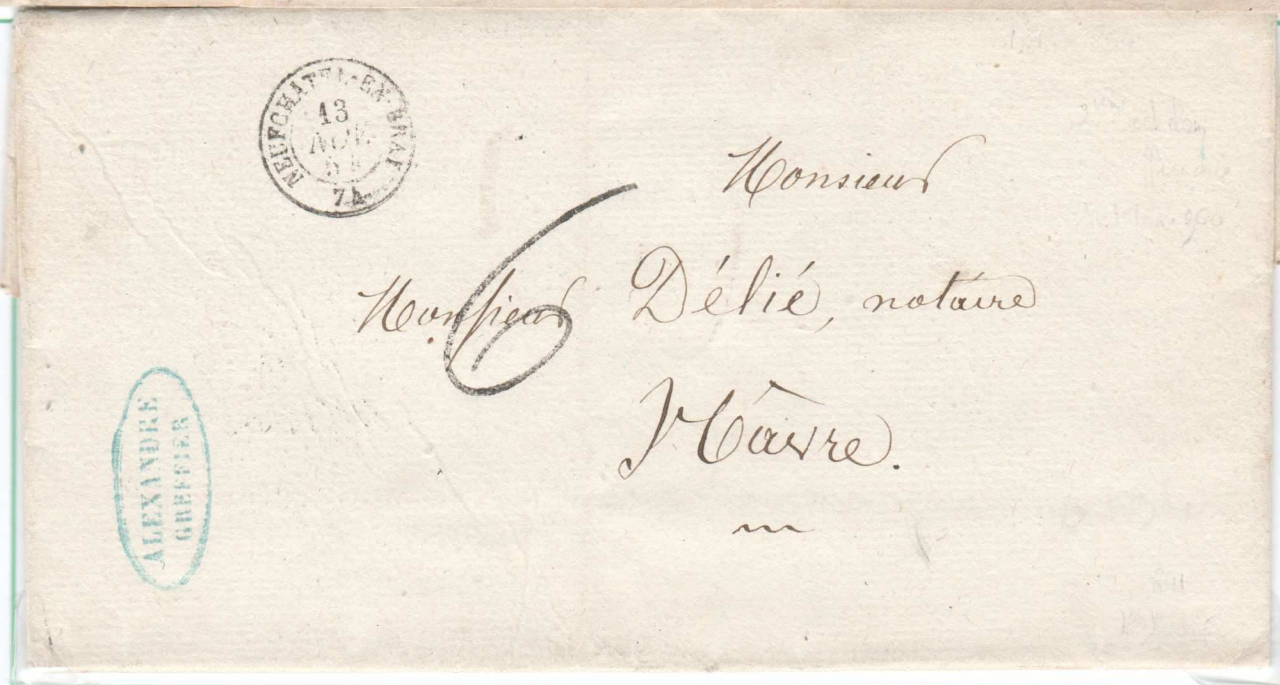 NEUFCHATEL-EN-BRAY
13
AOUT
74
6
Monsieur
Monsieur Délié, notaire
Hâvre.
ALEXANDRE
GREFFIER